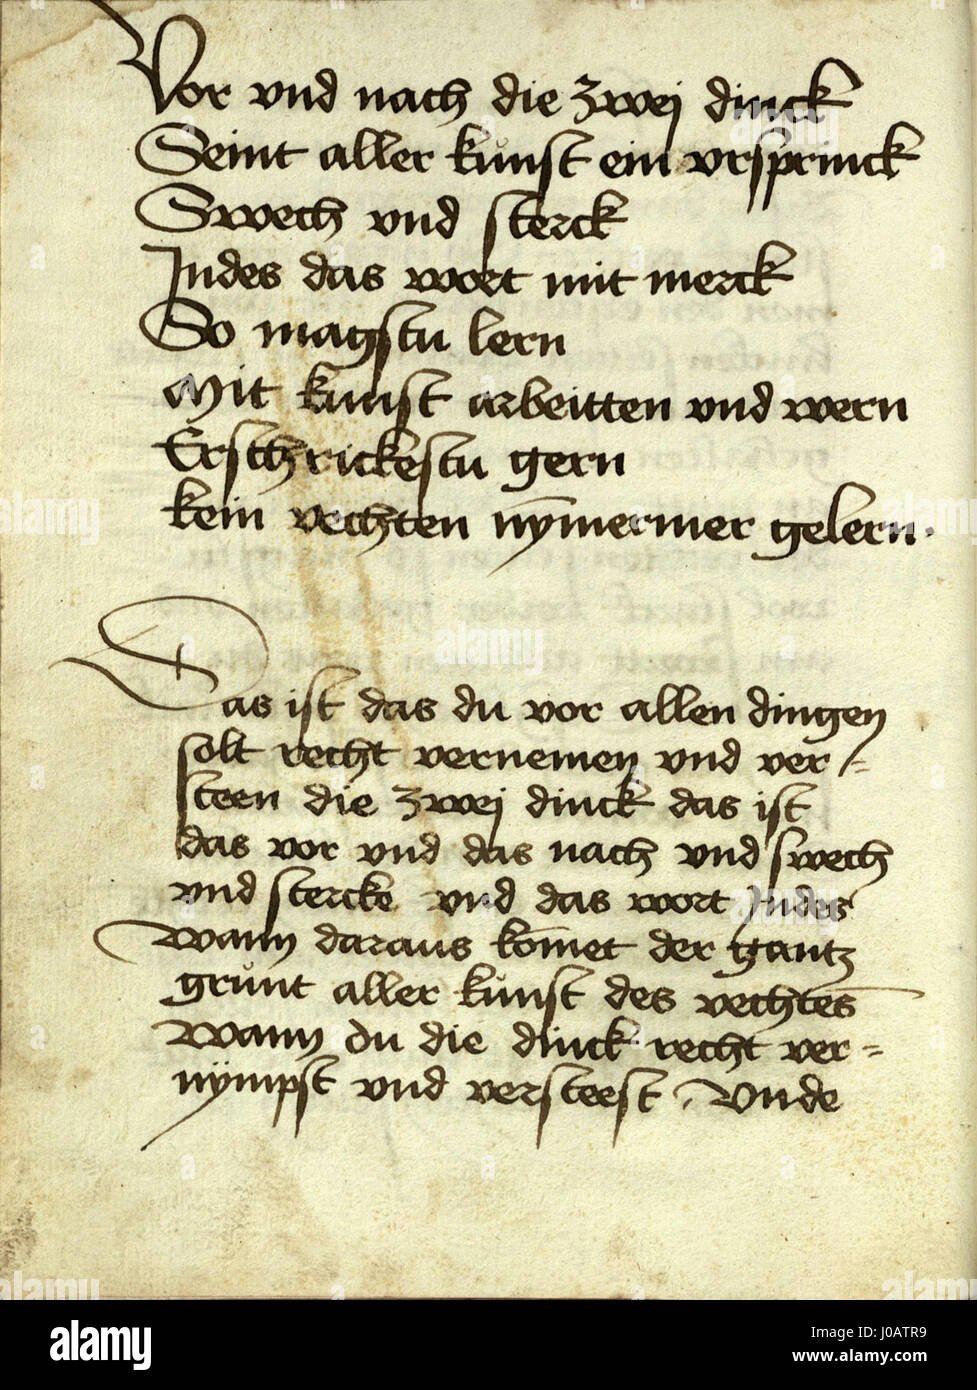 Vor vnd nach die zwej dinck
Seint aller kůnst ein vrsprinck
Swech vnd sterck
Indes das wort mit merck
So magstu lern
Mit kunst arbeitten vnd wern
Erschrickestu gern
kein vechten nȳmermer gelern.
Das ist das du vor allen dingen
solt recht vernemen vnd ver=
steen die zwej dinck das ist
das vor vnd das nach vnd swech
vnd stercke vnd das wort Indes
wann daraus kōmet der gantz
grůnt aller kůnst des vechtēs
wann du die dinck recht ver=
nympst vnd versteest. Vnde
alamy
Image ID: J0ATR9
www.alamy.com